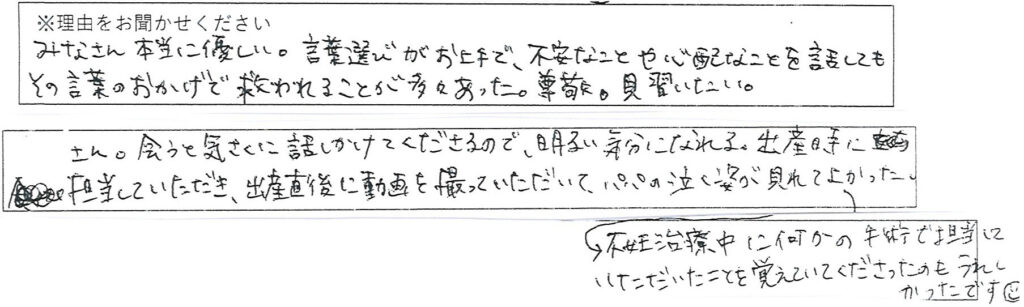 ※理由をお聞かせください
みなさん本当に優しい。言葉選びがお上手で、不安なことや心配なことを話しても
その言葉のおかげで救われることが多々あった。尊敬。見習いたい。
さん。会うと気さくに話しかけてくださるので、明るい気分になれる。出産時に
担当していただき、出産直後に動画を撮っていただいて、パパの泣く姿が見れてよかった。
不妊治療中に何かの手術で担当して
いただいたことを覚えていてくださったのもうれし
かったです☺